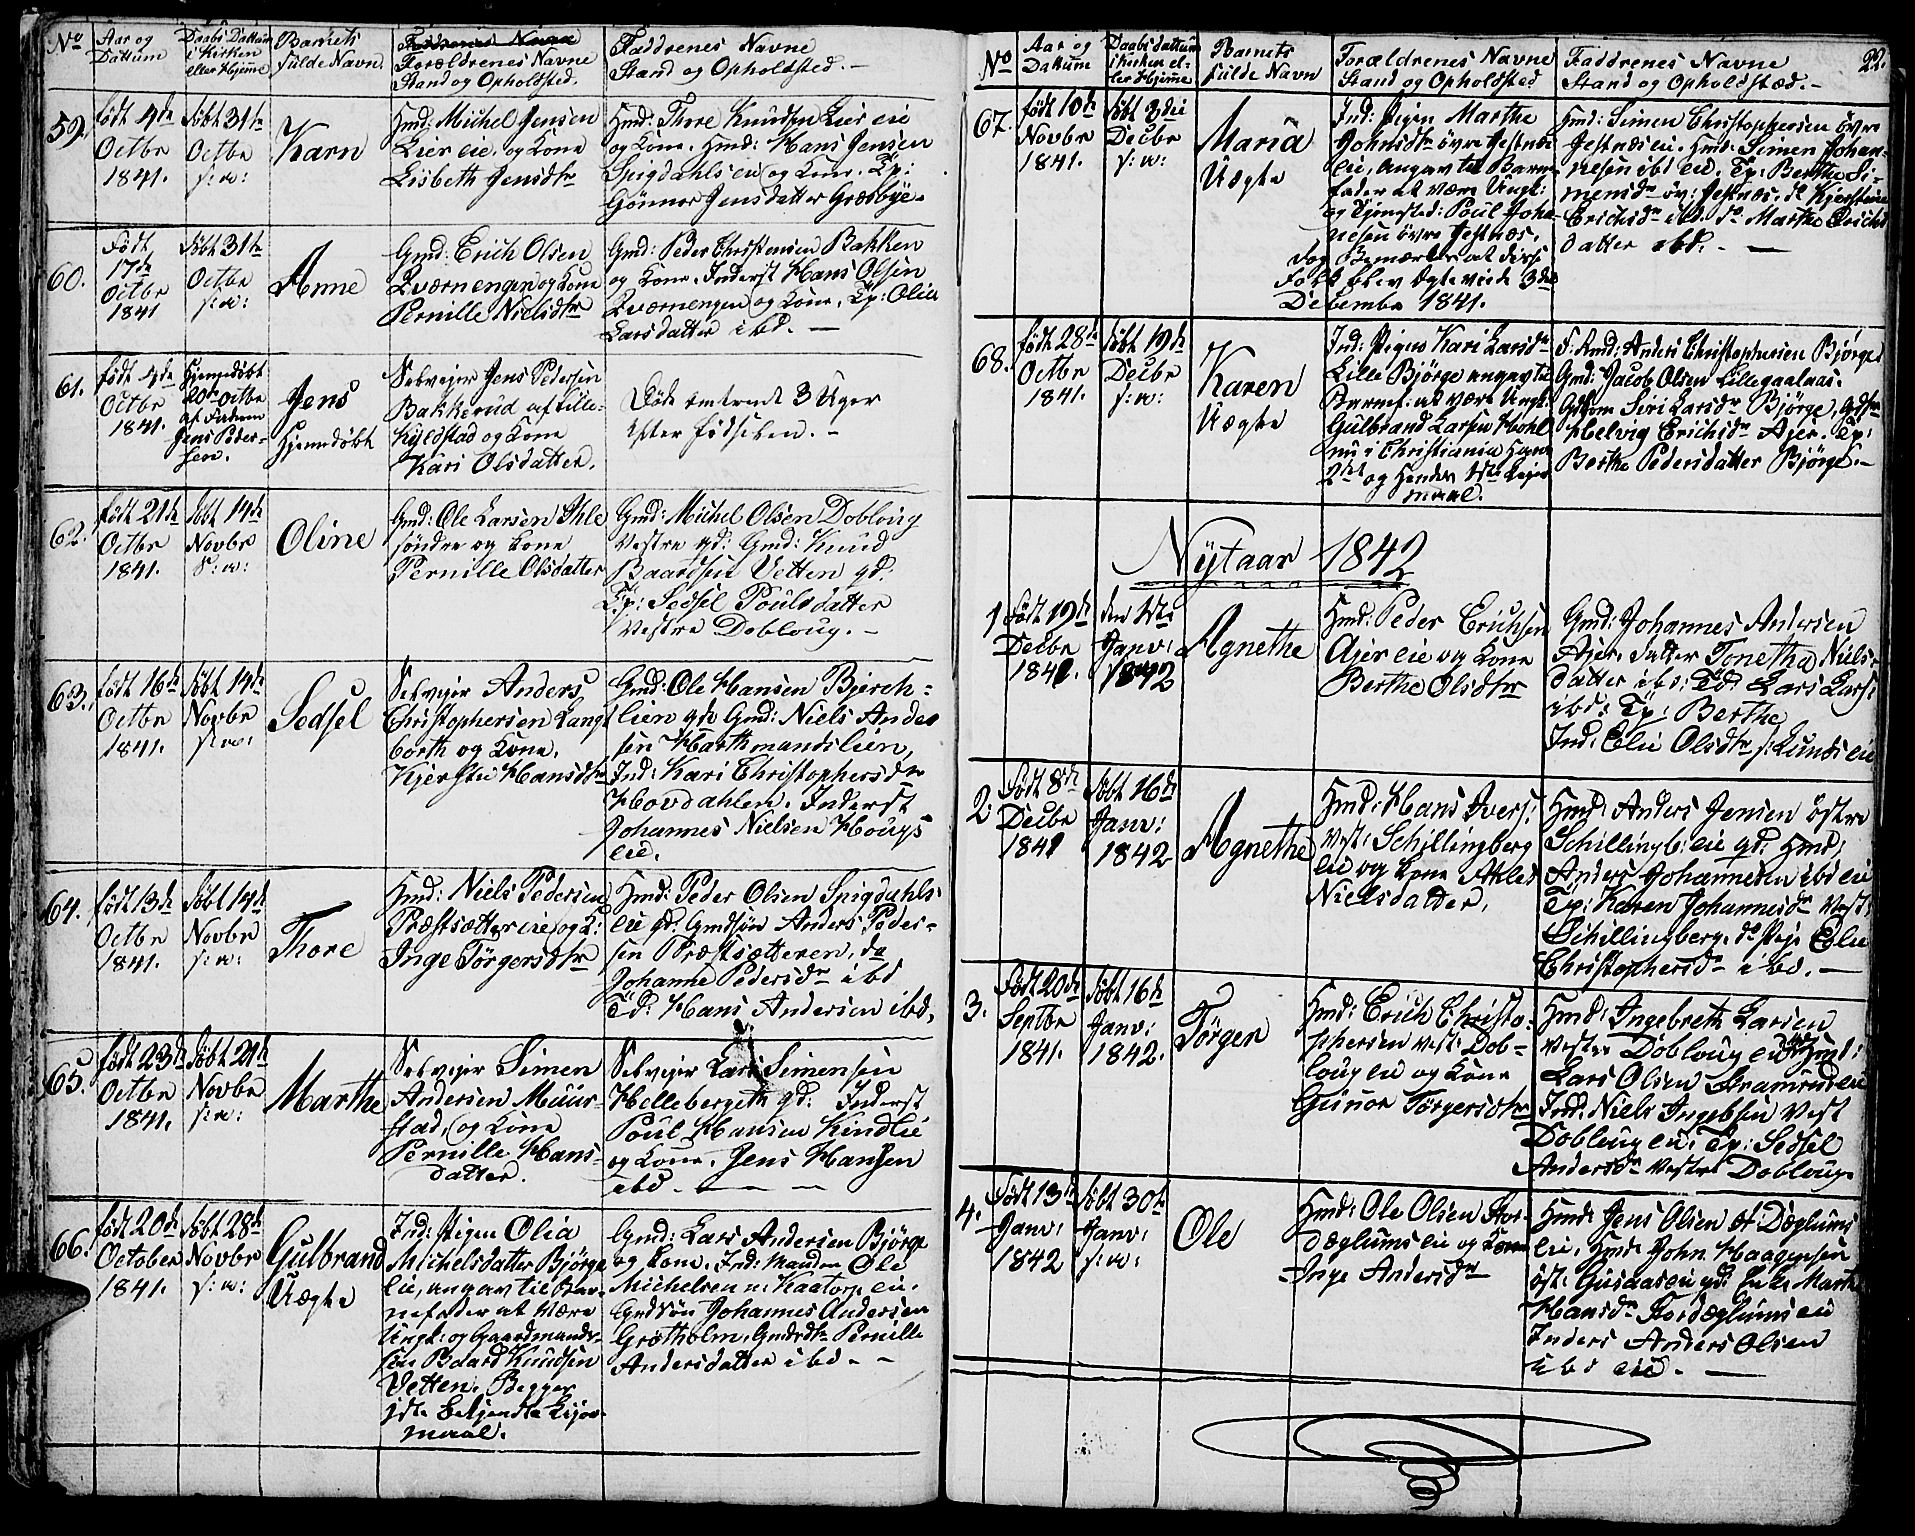 No
Aar og
Dattum
Daabs Dattum
i Kirken
eller Hjeme
Barnets
fulde Navn
Faddrenes Navne
Forældrenes Navne
Stand og Opholdsted.
Faddrenes Navne
Stand og Opholdsted. -
59.
født 4de
Octbr
1841.
døbt 31te
Octbr
s: a:
Karn
Hmd: Michel Jensen
Lier eie. og Kone
Lisbeth Jensdtr
Hmd: Thore Knudsen Lier eie
og Kone. Hmd: Hans Jensen
Spigdahlseie og Kone. Tp:
Gønnor Jensdatter Græsbye -
60.
Født
17de
Octbr
1841
døbt 31te
Octbr
s: a:
Anne
Gmd: Erich Olsen
Qværnengen og Kone
Pernille Nielsdtr
Gmd: Peder Christensen Bakken
og Kone. Inderst Hans Olsen
Qværnengen og Kone. Tp: Olia
Larsdatter ibd. -
61.
født 4de
Octbr
1841.
Hjemedøbt
20de Octbr
af Faderen
Jens Peder-
sen.
Jens
Hjemdøbt
Selvejer Jens Pedersen
Bakkerud af Lille-
Kyldstad og Kone
Kari Olsdatter.
Døde omtrent 3 Uger
efter fødselen. -
62.
født 21de
Octbr
1841.
døbt 14de
Novbr
s: a:
Oline
Gmd: Ole Larsen Ihle
søndre og Kone
Pernille Olsdatter
Gmd: Michel Olsen Dobloug
Vestre gd: Gmd: Knud
Baardsen Vetten gd:
Tp: Sedsel Poulsdatter
Vestre Dobloug. -
63.
født 16de
Octbr
1841.
døbt 14de
Novbr
s: a:
Sedsel
Selvejer Anders
Christophersen Langs
borth og Kone.
Kjerstie Hansdtr
Gmd: Ole Hansen Bjerch-
lien gde Gmd: Niels Ander
sen Harthmandslien,
Ind: Kari Christophersdr
Hovdahlen. Inderst
Johannes Nielsen Hougs
eie.
64.
født 13de
Octbr
1841.
døbt 14de
Novbr
s: a:
Thore
Hmd: Niels Pedersen
Præstsætter eie og K:
Inge Tørgersdtr
Hmd: Peder Olsen Spigdahls-
eie gd: Gmdsøn Anders Peder-
sen Præstsætteren, do
Johanne Pedersdr ibd
Td: Hans Andersen ibd.
65.
født 23de
Octbr
1841.
døbt 21de
Novbr
s: a:
Marthe
Selvejer Simen
Andersen Muur-
stad, og Kone
Pernille Hans-
datter.
Selvejer Lars Simensen
Hellebergeth gd: Inderst
Poul Hansen Kindlie
og Kone. Jens Hansen
ibd - - -
66.
født 20de
October
1841.
døbt 28de
Novbr
s: a:
Gulbrand
Uægte
Ind: Pigen Olia
Michelsdatter Bjørge
eie, angav til Bar-
nefader at være
Ungk: og Gaardmands-
søn Baard Knudsen
Vetten. Begges
1ste bekjendte Lejer-
maal.
Gmd: Lars Andersen Bjørge
og Kone. Ind: Manden Ole
Michelsen n: Kaatorp eie.
Gmdsøn Johannes Andersen
Grøtholm. Gmdsdtr Pernille
Andersdatter ibd - -
22.
No
Aar og
Dattum
Daabsdattum
i Kirken el-
ler Hjeme
Barnets
fulde Navn
Forældrenes Navne
Stand og Opholdsted
Faddrenes Navne
Stand og Opholdstæd. -
67.
født 10de
Novbr
1841.
døbt 3die
Decbr
s: a:
Maria
Uægte
Ind: Pigen Marthe
Johnsdtr øvre Jestnæs
eie, angav til Barne-
fader at være Ungk:
og Tjenstd: Poul Joha
nesen øvre Jestnæs.
dog Bemærkes at disse
Folk blev ægteviede 3de
Decembr 1841.
Hmd: Simen Christophersen øvre
Jestnæs eie. Hmd: Simen Johan-
nesen ibd eie. Tp: Berthe Si-
mensdr øv: Jestnæs. do Kjerstine
Erichsdr ibd. do Marthe Erichs
datter ibd. - -
68.
født 28de
Octbr
1841.
døbt 19de
Decbr
s: a:
Karen
Uægte
Ind: Pigen Kari Larsdr
Lille Bjørge angav til
Barnef: at være Ungk:
Gulbrand Larsen Hohl
nu i Christiania Hans
2det og Hendes 1ste Lejer
maal.
Gmd: Anders Christophersen Bjørge
Gmd: Jacob Olsen Lillegaalaas.
Siri Larsdr Bjørge.
Helvig Erichsdr Ajer. Tp:
Berthe Pedersdatter Bjørge. -
Nytaar 1842
1
Født 19de
Decbr
1841.
den 1ste
Janv:
1842
Agnethe
Hmd: Peder Erichsen
Ajer eie og Kone
Berthe Olsdtr
Gmd: Johannes Andersen
Ajer. datter Tonetha Niels-
datter ibd: Td: Lars Lars:
ibd: Tp: Berthe
Ind: Elie Olsdtr s: Lunds eie
2
Født 8de
Decbr
1841
døbt 16de
Janv:
1842
Agnethe
Hmd: Hans Ivers:
vest: Schillingberg
eie og Kone Athle
Nielsdatter.
Hmd: Anders Jensen østre
Schillingb: eie gd: Hmd:
Anders Johannesen ibd eie
Tp: Karen Johannesdr vest:
Schillingberg. do Pige Eplie
Christophersdr ibd. -
3.
Født 20de
Septbr
1841.
døbt 16de
Janv:
1842.
Tørgen
Hmd: Erich Christo-
phersen vest: Dob-
loug eie og Kone
Gunor Tørgersdtr
Hmd: Ingebreth Larsen
vestre Dobloug eie Hmd:
Lars Olsen Stramrud eie
Ind: Niels Ingebsen vest
Dobloug eie. Tp: Sedsel
Andersdr vestre Dobloug.
4.
Født 13de
Janv:
1842
døbt 30te
Janv:
s: a:
Ole
Hmd: Ole Olsen Stor-
dæglums eie og Kone
Inge Andersdr
Hmd: Jens Olsen St: Dæglums
eie. Hmd: John Haagensen
øst: Gusaas eie gd: Enke Marth
Hansdr Stordæglums eie
Inders Anders Olsen
ibd eie. -